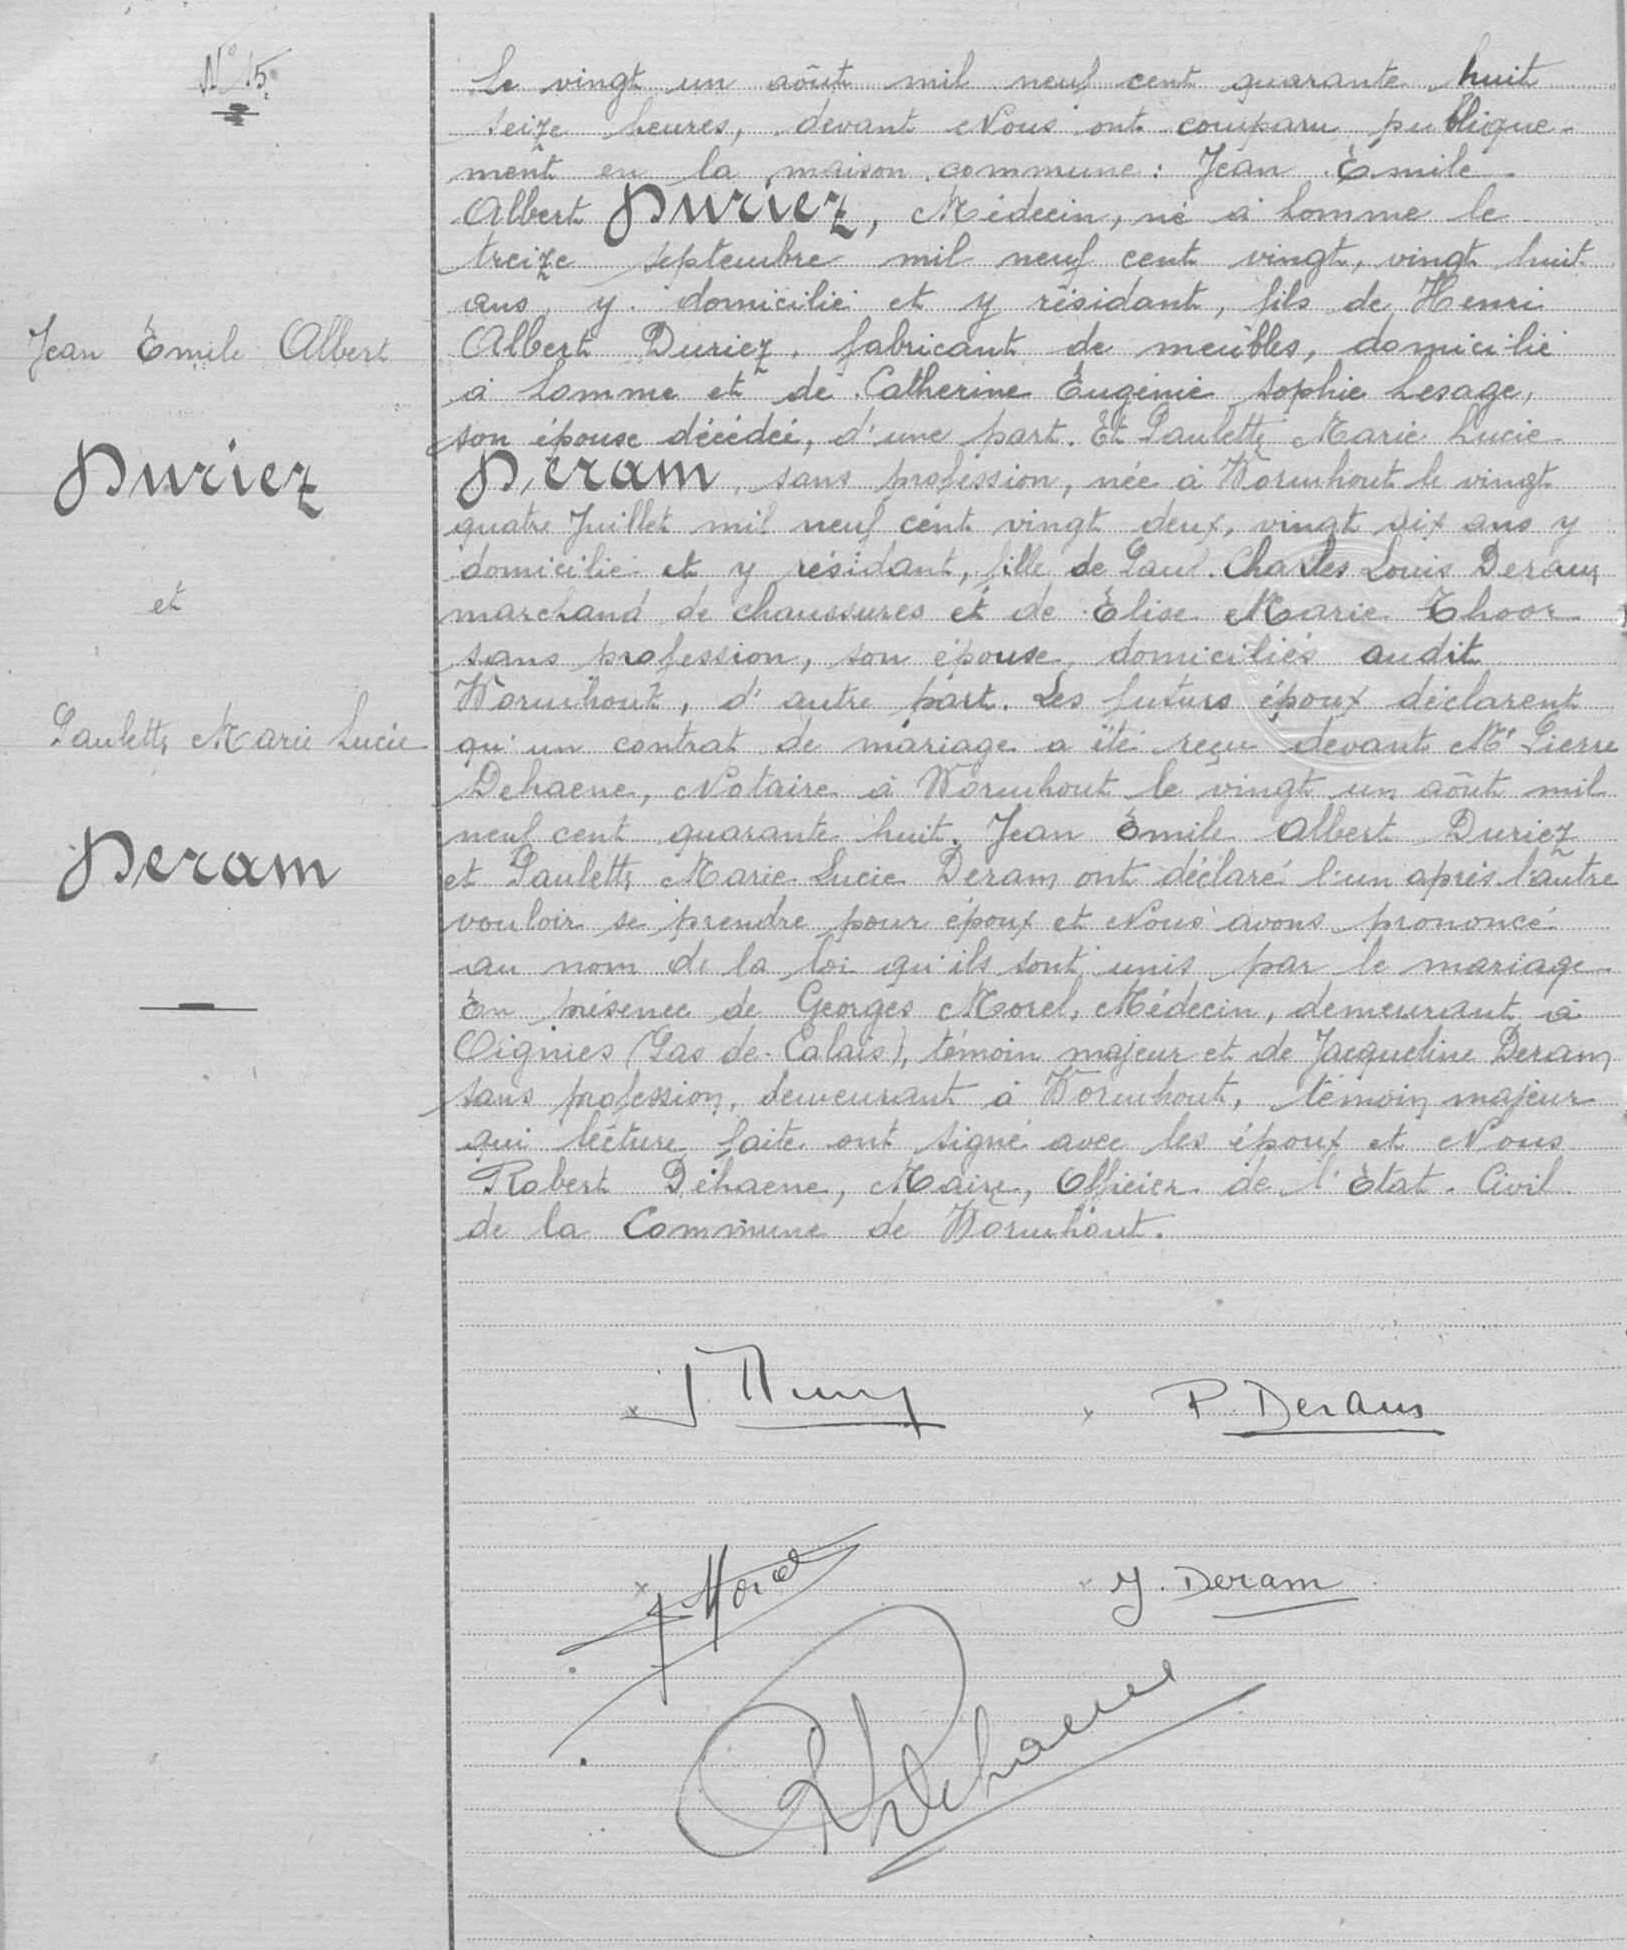 N° 15.
Le vingt un août mil neuf cent quarante huit
seize heures, devant Nous ont comparu publique-
ment en la maison commune : Jean Émile
Albert Duriez, Médecin, né à Lomme le
treize septembre mil neuf cent vingt, vingt huit
ans, y domicilié et y résidant, fils de Henri
Albert Duriez, fabricant de meubles, domicilié
à Lomme et de Catherine Eugénie Sophie Lesage,
son épouse décédée, d'une part. Et Paulette Marie Lucie
Deram, sans profession, née à Wormhout le vingt
quatre Juillet mil neuf cent vingt deux, vingt six ans y
domicilié et y résidant, fille de Paul Charles Louis Deram
marchand de chaussures et de Élise Marie Thoor
sans profession, son épouse, domiciliés audit
Wormhout, d'autre part. Les futurs époux déclarent
qu'un contrat de mariage a été reçu devant Me Pierre
Dehaene, Notaire à Wormhout le vingt un août mil
neuf cent quarante huit. Jean Émile Albert Duriez
et Paulette Marie Lucie Deram ont déclaré l'un après l'autre
vouloir se prendre pour époux et Nous avons prononcé
au nom de la loi qu'ils sont unis par le mariage
En présence de Georges Morel, Médecin, demeurant à
Oignies (Pas-de-Calais), témoin majeur et de Jacqueline Deram
sans profession, demeurant à Wormhout, témoin majeur
qui lecture faite ont signé avec les époux et Nous
Robert Dehaene, Maire, Officier de l'État-Civil
de la Commune de Wormhout.
Jean Émile Albert
Duriez
et
Paulette Marie Lucie
Deram
P. Deram
Morel
J. Deram
R Dehaene